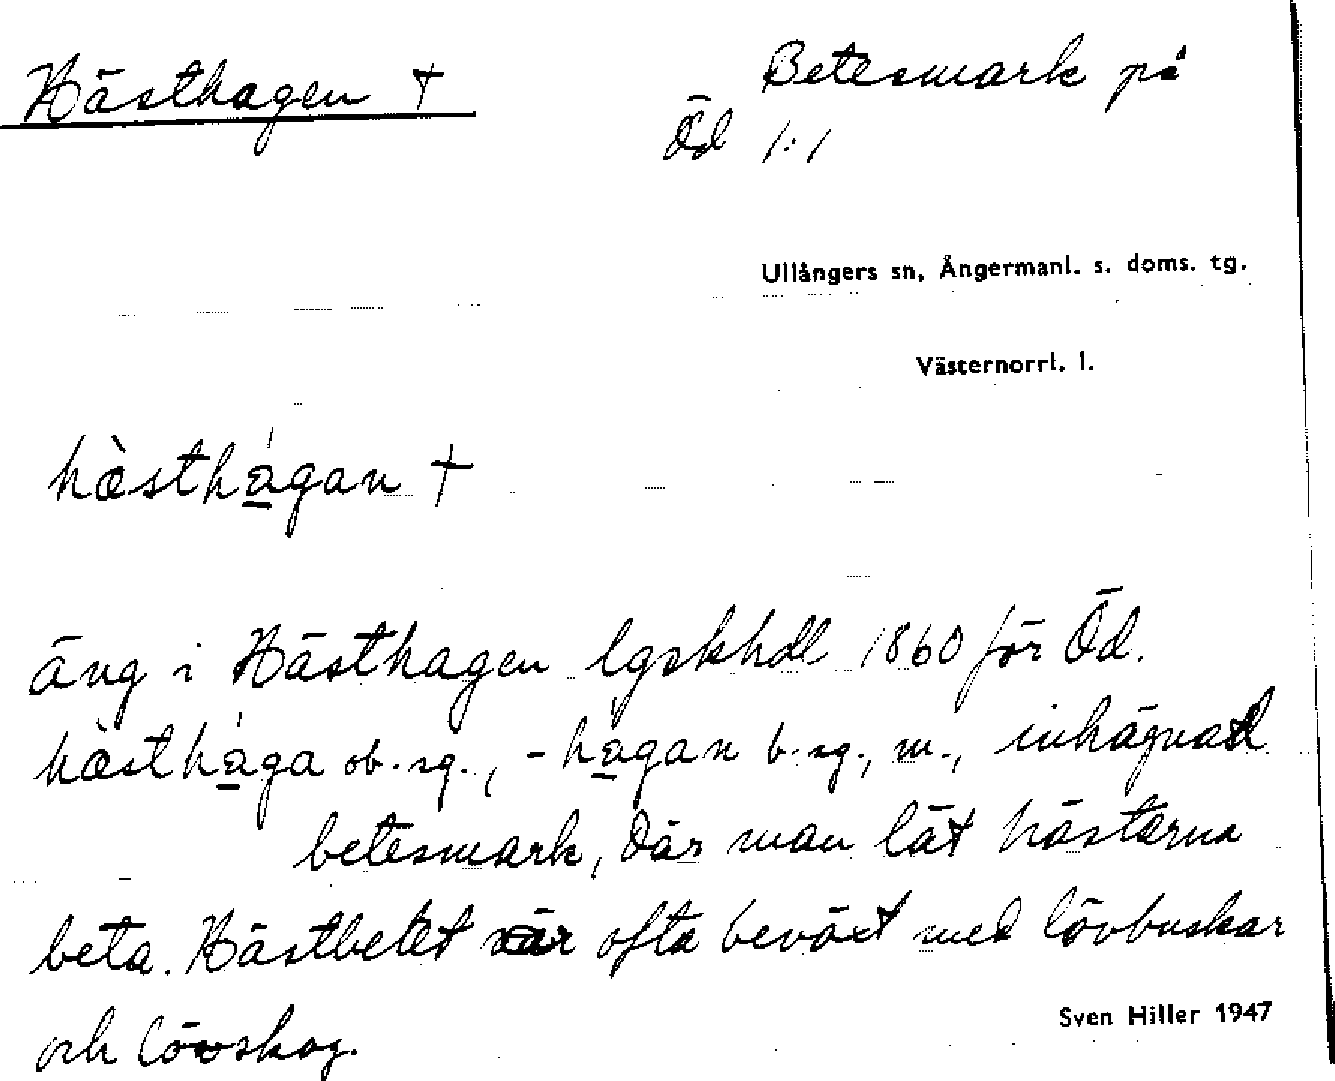 Hästhagen †
Betesmark på
Öd 1:1
Ullångers sn, Ångermanl. s. doms. tg.
Västernorrl. l.
hὰsthá̱gan †
äng i Hästhagen lgskhdl 1860 för Öd.
hὰsthá̱ga ob. sg., -há̱gan b. sg., m., inhägnad
betesmark, där man lät hästarna
beta. Hästbetet är ofta beväxt med lövbuskar
och lövskog.
Sven Hiller 1947